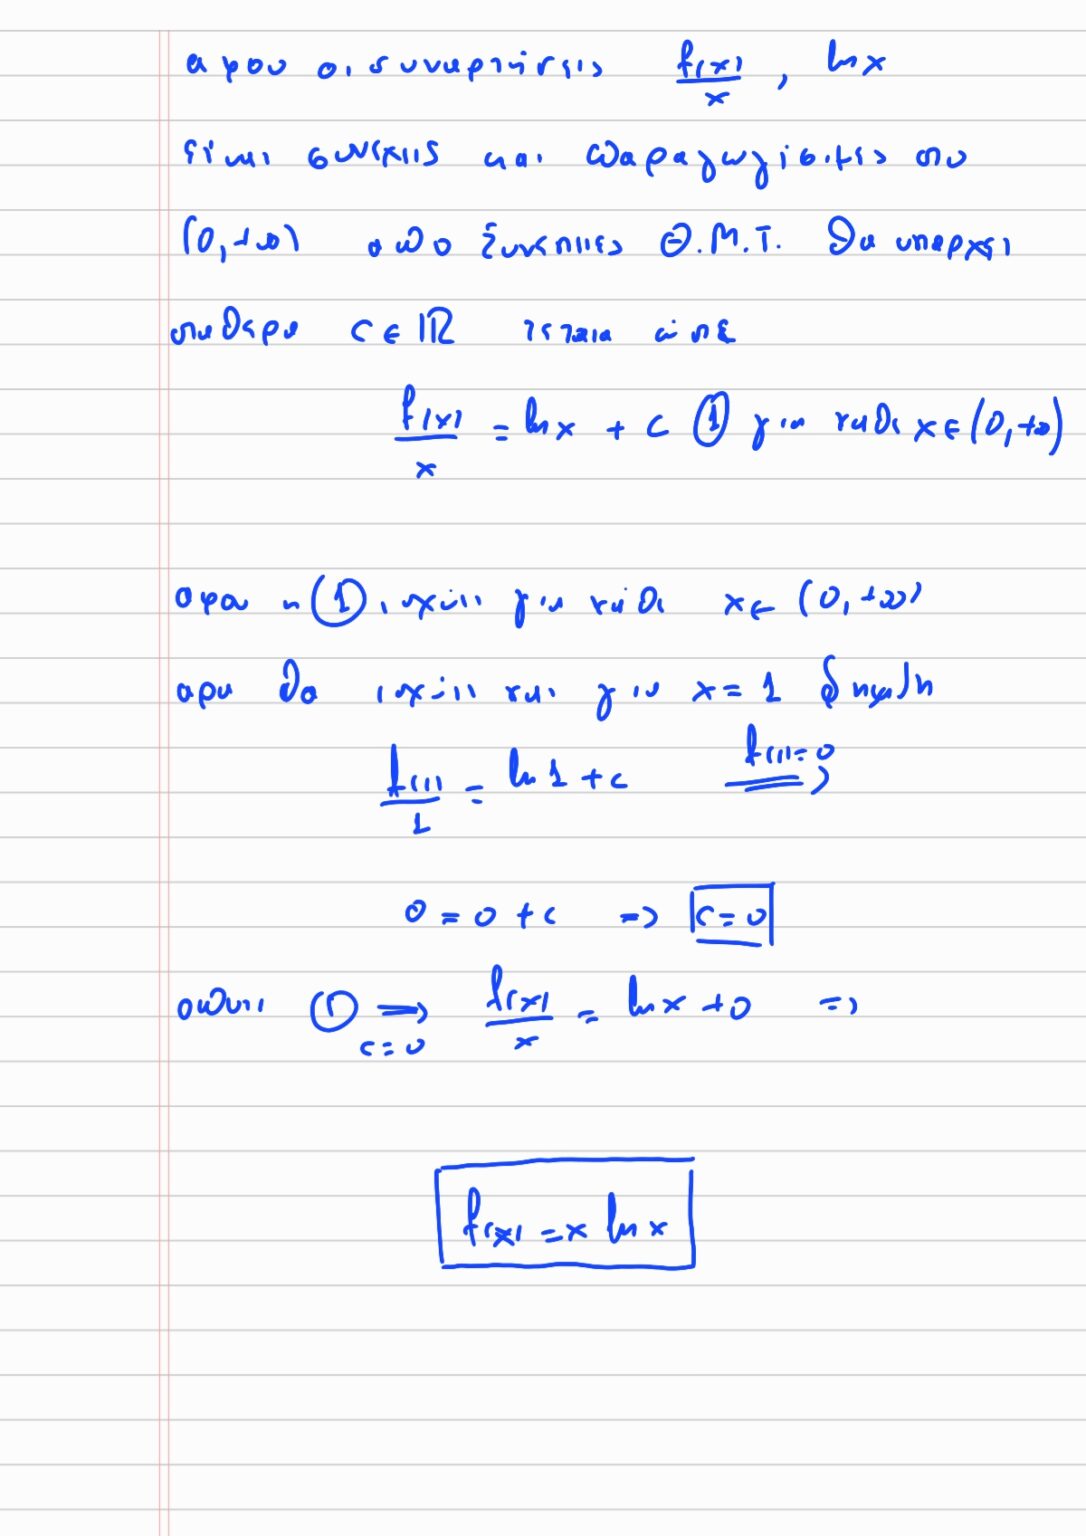 αφου οι συναρτήσεις f(x)/x , lnx
είναι συνεχης και παραγωγίσιμες στο
(0,+∞) απο Συνεπιες Θ.Μ.Τ. θα υπαρχει
σταθερα c∈ℝ τετοια ώστε
f(x)/x = lnx + c ① για καθε x∈(0,+∞)
αρα η ① ισχύει για κάθε x∈(0,+∞)
αρα θα ισχύει και για x=1 δηλαδη
f(1)/1 = ln1+c f(1)=0 ⟹
0=0+c => c=0
οποτε ① ⟹ c=0 f(x)/x = lnx+0 =>
f(x)=x lnx